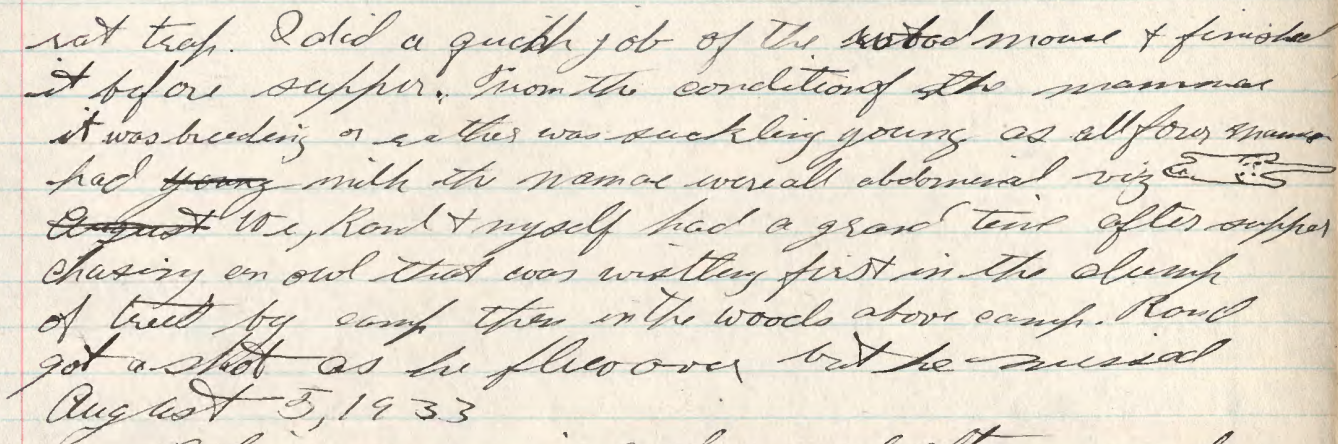 rat trap. I did a quick job of the wood mouse & finished
it before supper. From the condition of the mammae
it was breeding or rather was suckling young as all four mamae
had young milk the mamae were all abdominal viz
August We, Rand & myself had a grand time after supper
chasing an owl that was wistling first in the clump
of trees by camp then in the woods above camp. Rand
got a shot as he flew over but he missed
August 5, 1933